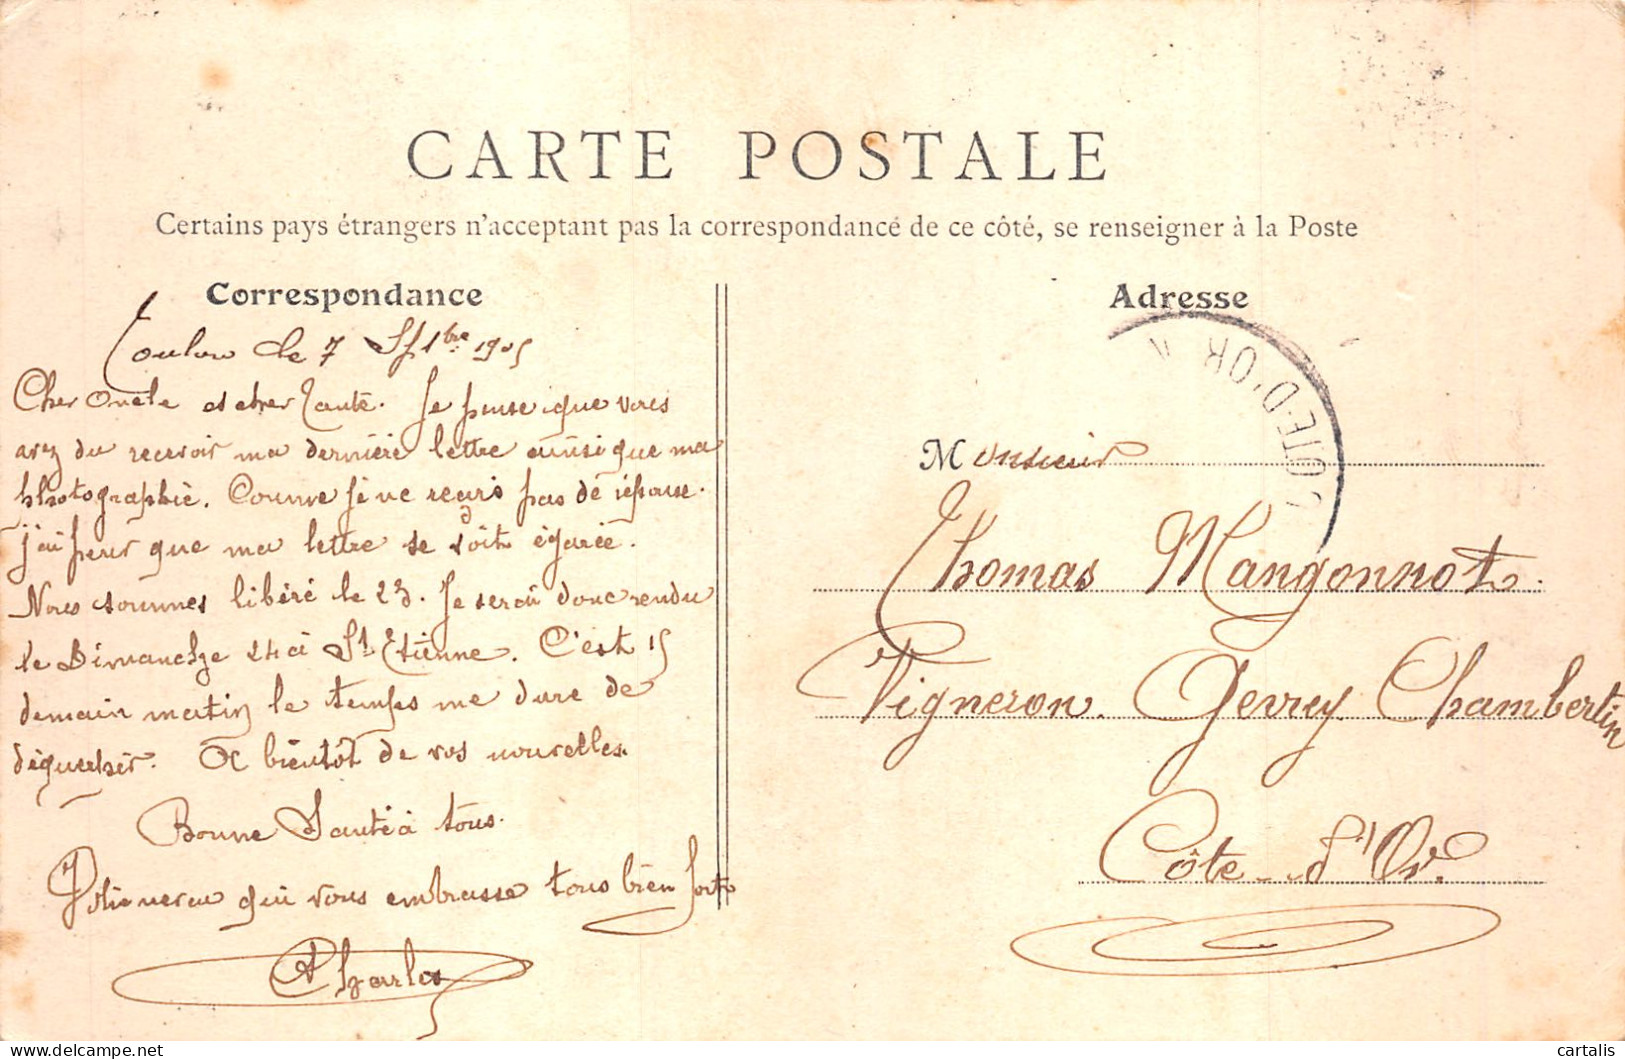 CARTE POSTALE
Certains pays étrangers n'acceptant pas la correspondance de ce côté, se renseigner à la Poste
Correspondance
Toulon le 7 7bre 1905
Cher Oncle et cher Tante. Je pense que vous
avez du recevoir ma dernière lettre aussi que ma
photographie. Comme je ne reçois pas de réponse.
j'ai peur que ma lettre se soit égarée.
Nous sommes libéré le 23. Je serai donc rendu
le Dimanche 24 à St Etienne. C'est 15
demain matin le temps me dure de
déguerpir. A bientôt de vos nouvelles.
Bonne Santé à tous.
qui vous embrasse tous bien fort
Charles
Adresse
Monsieur
Thomas Mangonnot.
Vigneron. Gevrey Chambertin
Côte-d'Or.
COTE-D'OR
cartalis